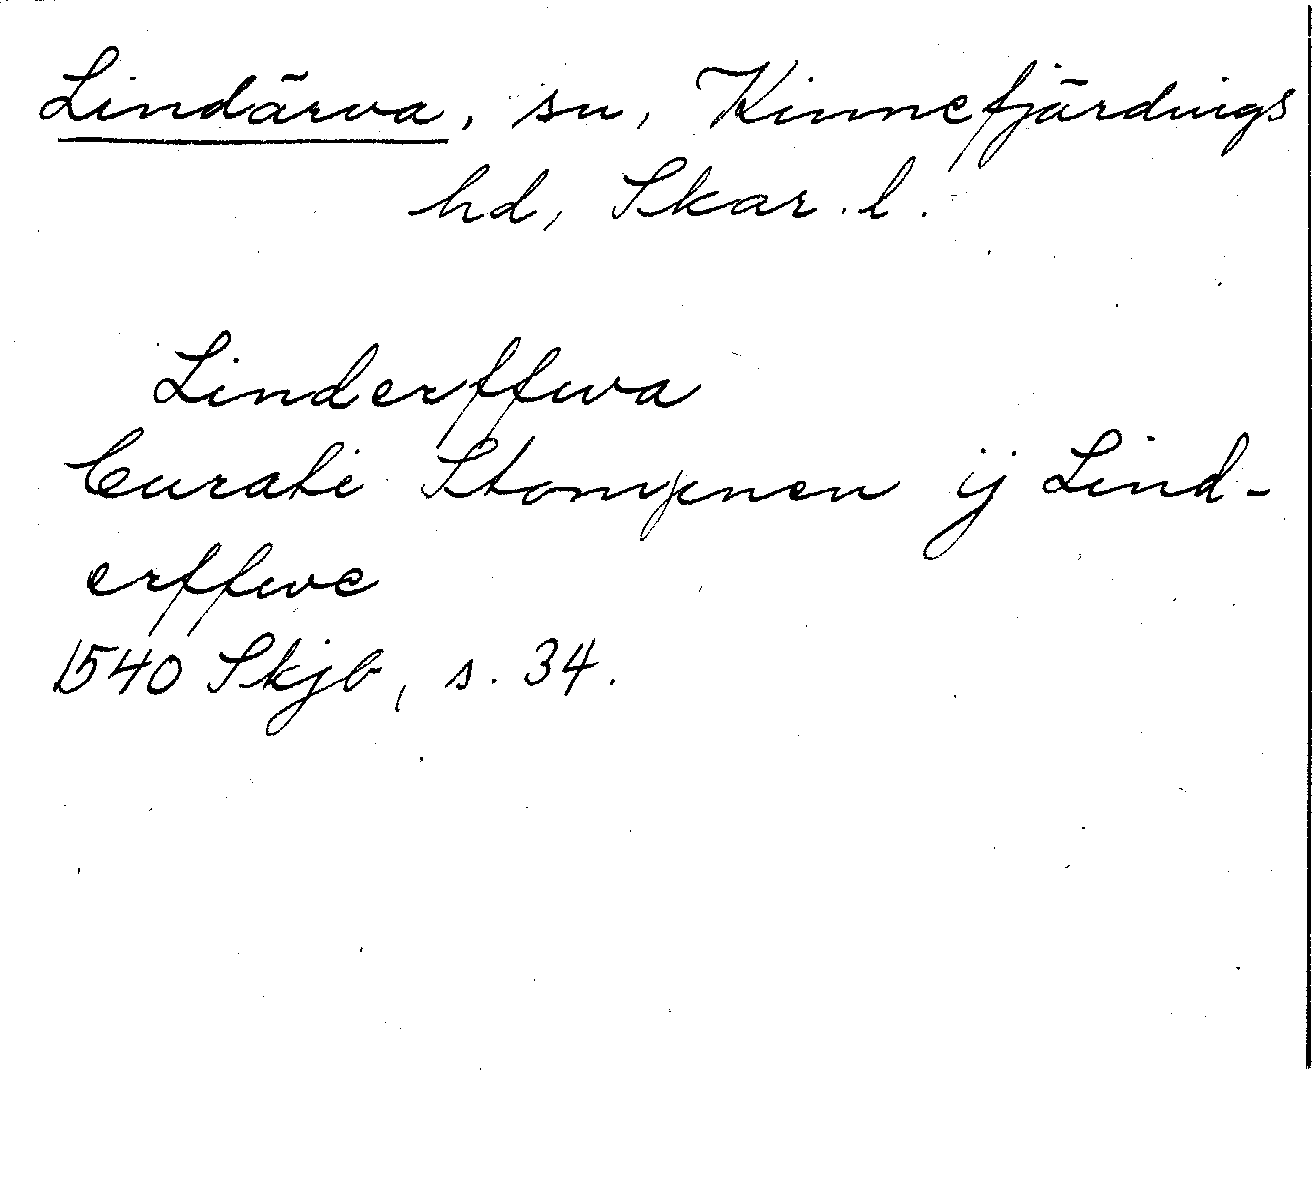 Lindärva, sn, Kinnefjärdings
hd, Skar. l.
Linderffwa
Curate Stompnen ij Lind-
erffwe
1540 Skjb, s. 34.